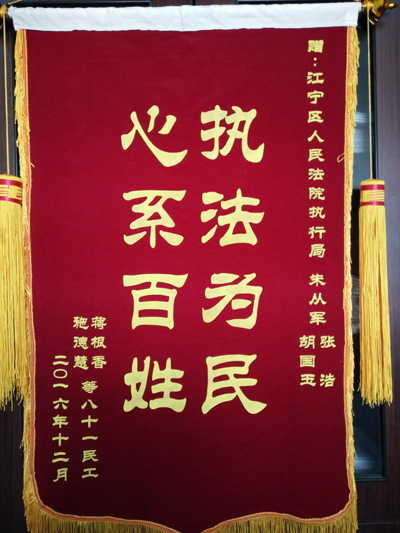 赠：江宁区人民法院执行局 朱从军
张浩
胡国玉
执法为民
心系百姓
蒋根香
施德慧
等八十一民工
二〇一六年十二月